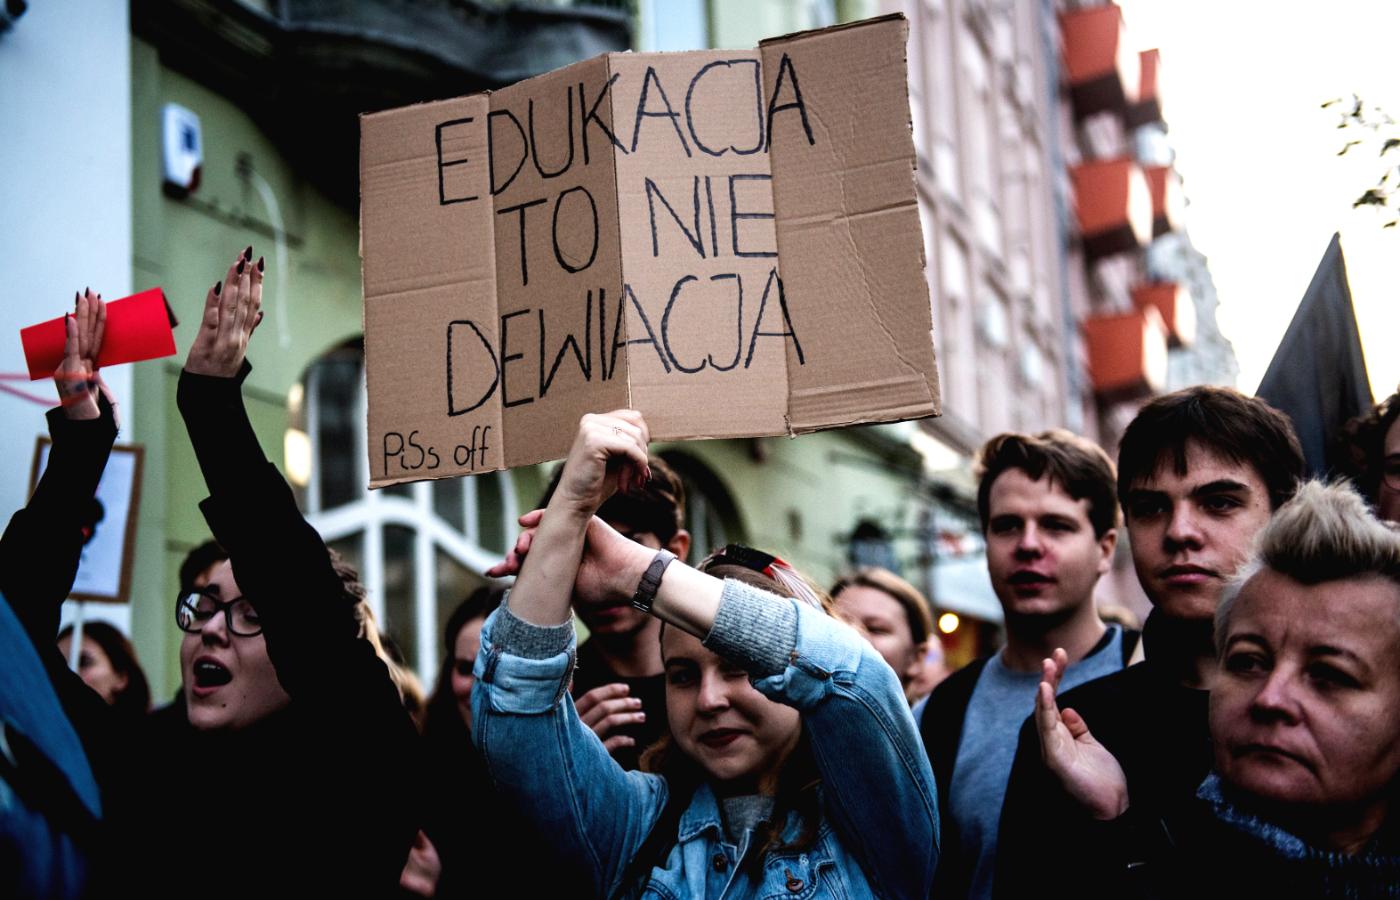 EDUKACJA
TO NIE
DEWIACJA
PiSs off